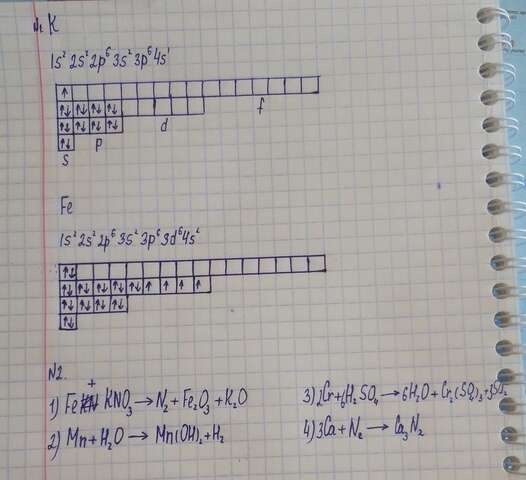 №1 K
1s² 2s² 2p⁶ 3s² 3p⁶ 4s¹
f
d
p
s
Fe
1s² 2s² 2p⁶ 3s² 3p⁶ 3d⁶ 4s²
N2.
1) Fe + KNO₃ → N₂ + Fe₂O₃ + K₂O
2) Mn + H₂O → Mn(OH)₂ + H₂
3) 2Cr + 6H₂SO₄ → 6H₂O + Cr₂(SO₄)₃ + 3SO₂
4) 3Ca + N₂ → Ca₃N₂